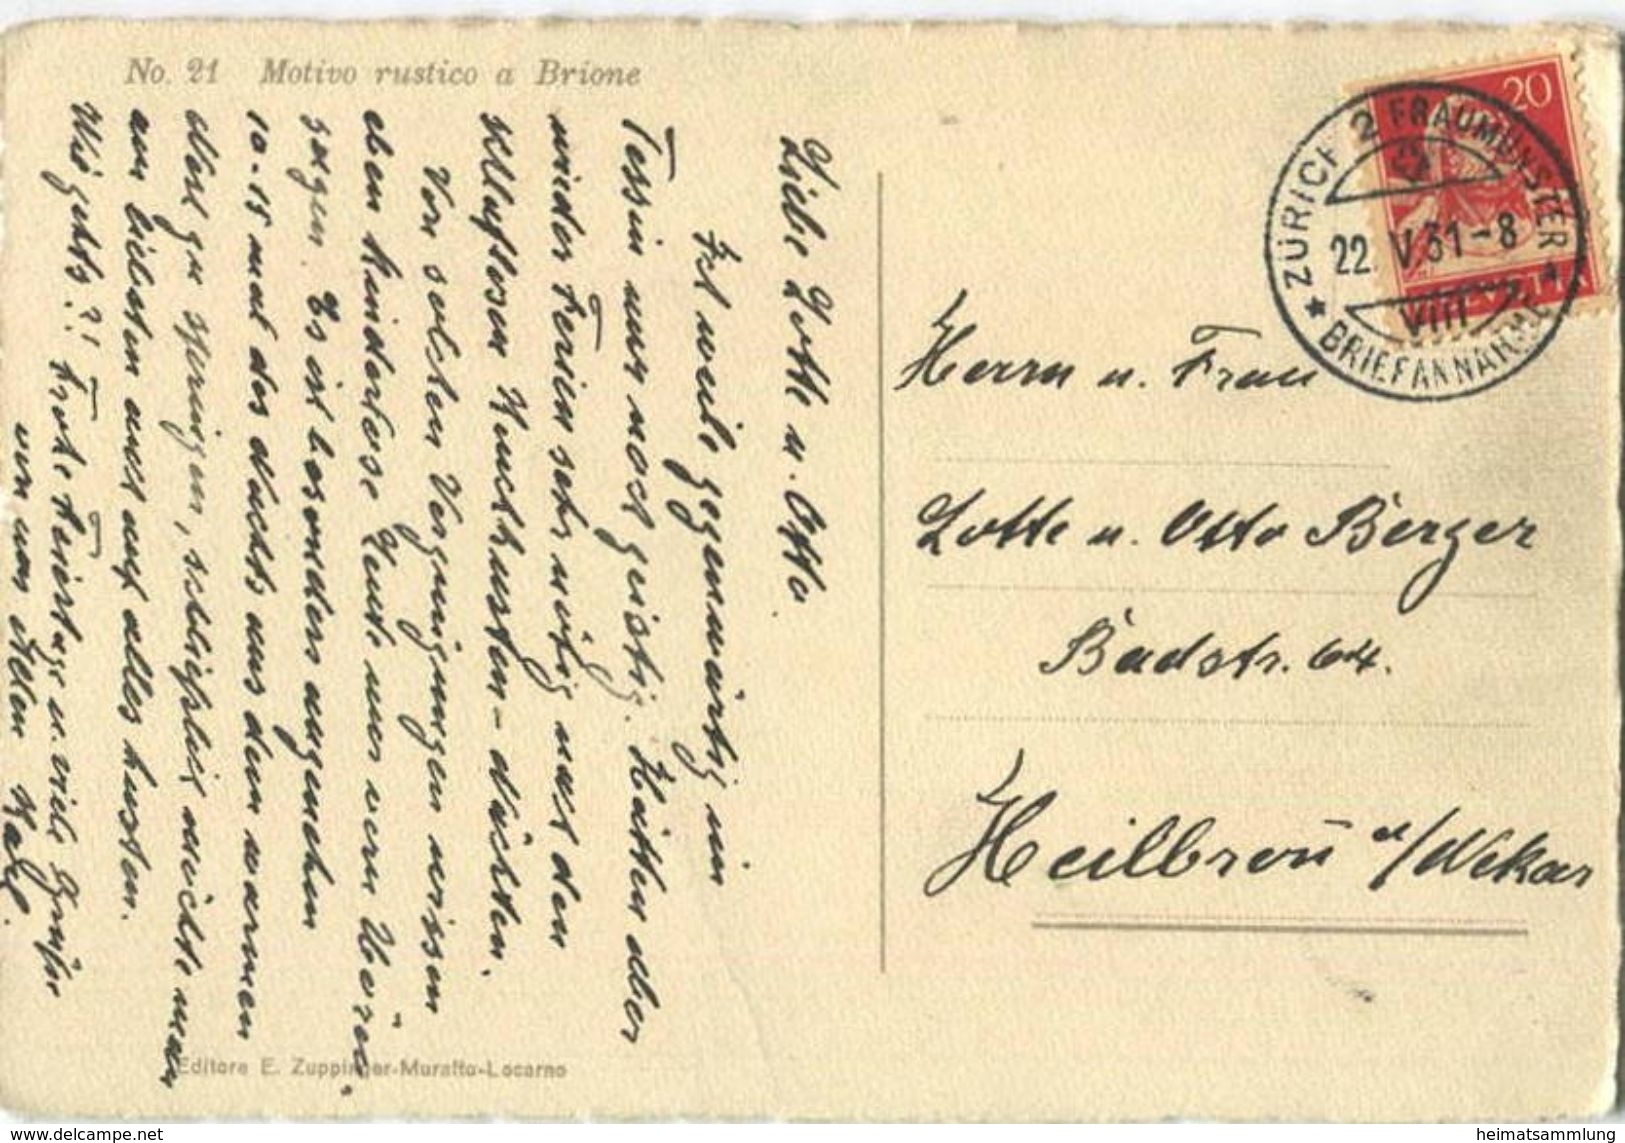 No. 21 Motivo rustico a Brione
20
HELVETIA
ZÜRICH 2 FRAUMÜNSTER
22. V. 31-8
VIII
BRIEFANNAHME
Liebe Lotte u. Otto.
Ich weile gegenwärtig im
Tessin nur noch geistig. Hätten aber
wieder Ferien sehr nötig nach den
schlaflosen Keuchhusten-Nächten.
Von solchen Vergnügungen wissen
eben kinderlose Leute nur vom Hören
sagen. Es ist besonders angenehm
10-15 mal des Nachts aus dem warmen
Nest zu springen, schliesslich möchte man
am liebsten auch auf alles husten.
Wie gehts?! Frohe Feiertage u. viele Grüsse
von uns Allen
Herrn u. Frau
Lotte u. Otto Berger
Badstr. 64.
Heilbron̄ a/Nekar
Editore E. Zuppinger-Muralto-Locarno
www.delcampe.net
heimatsammlung